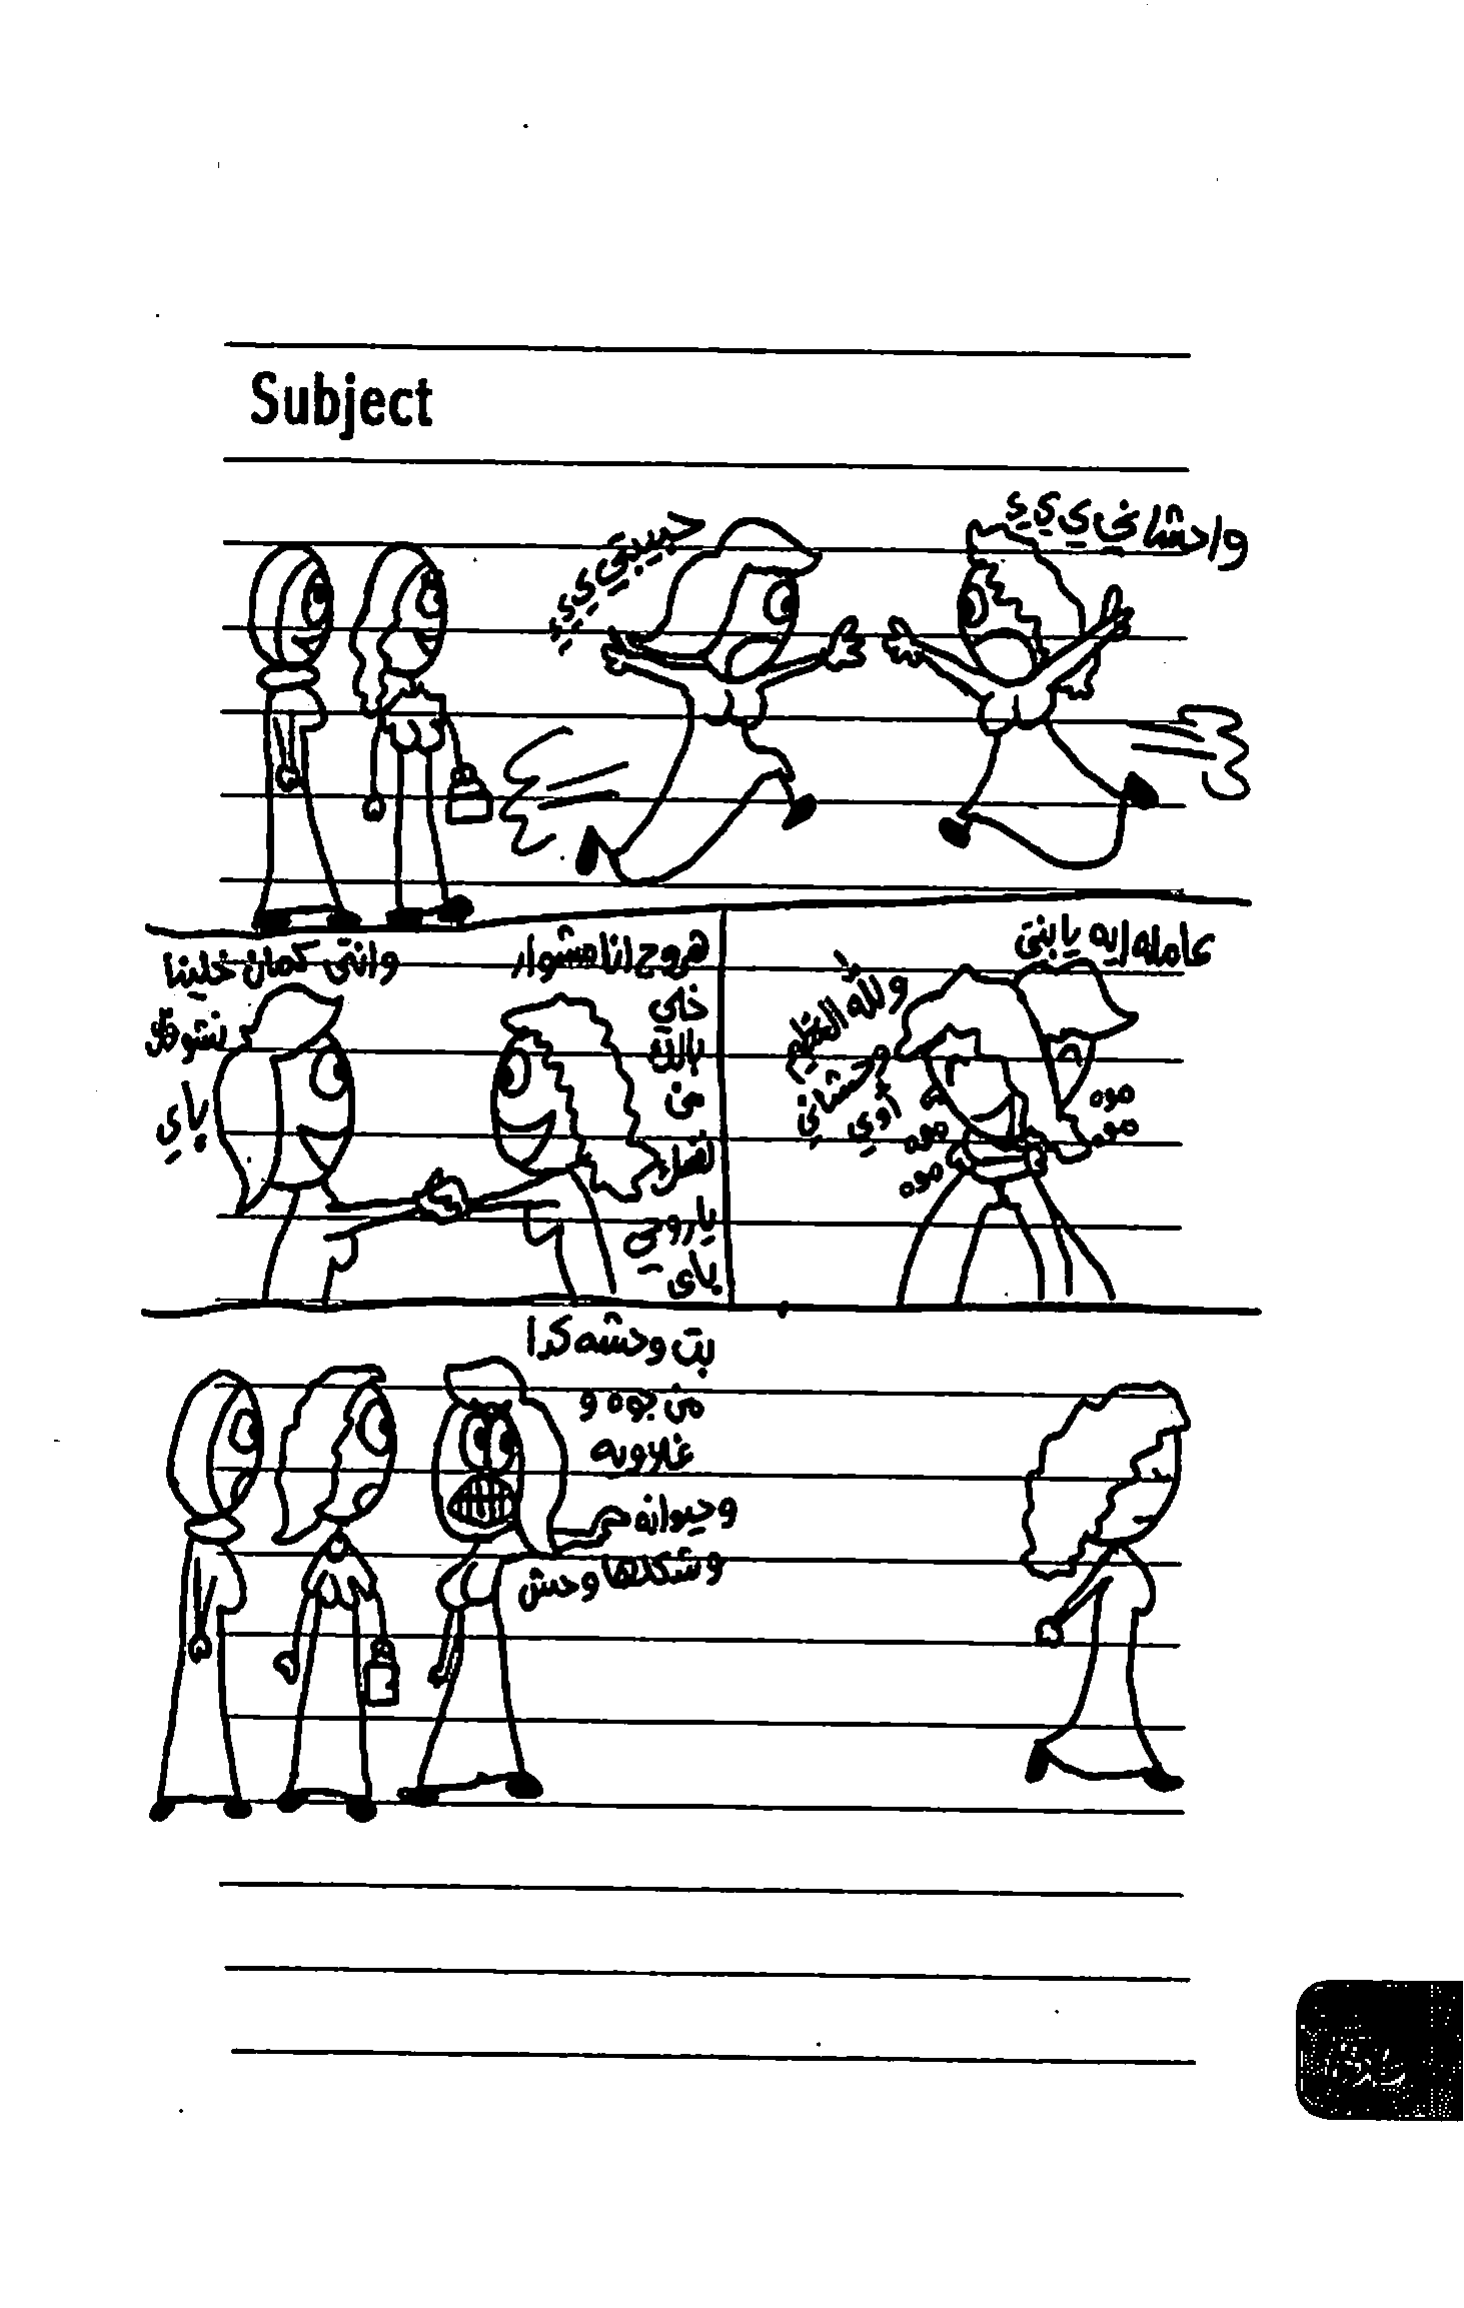 Subject
واحشاني ي ي ي
حبيبتي ي ي ي
عامله إيه يا بنتي
والله العظيم
وحشاني
أوي
موه
موه
موه
موه
هروح انا مشوار
خلي
بالك
من
نفسك
يا روحي
باي
وانتي كمان خلينا
نشوفك
باي
بت وحشه كدا
من جوه و
غلاويه
وحيوانه
وشكلها وحش